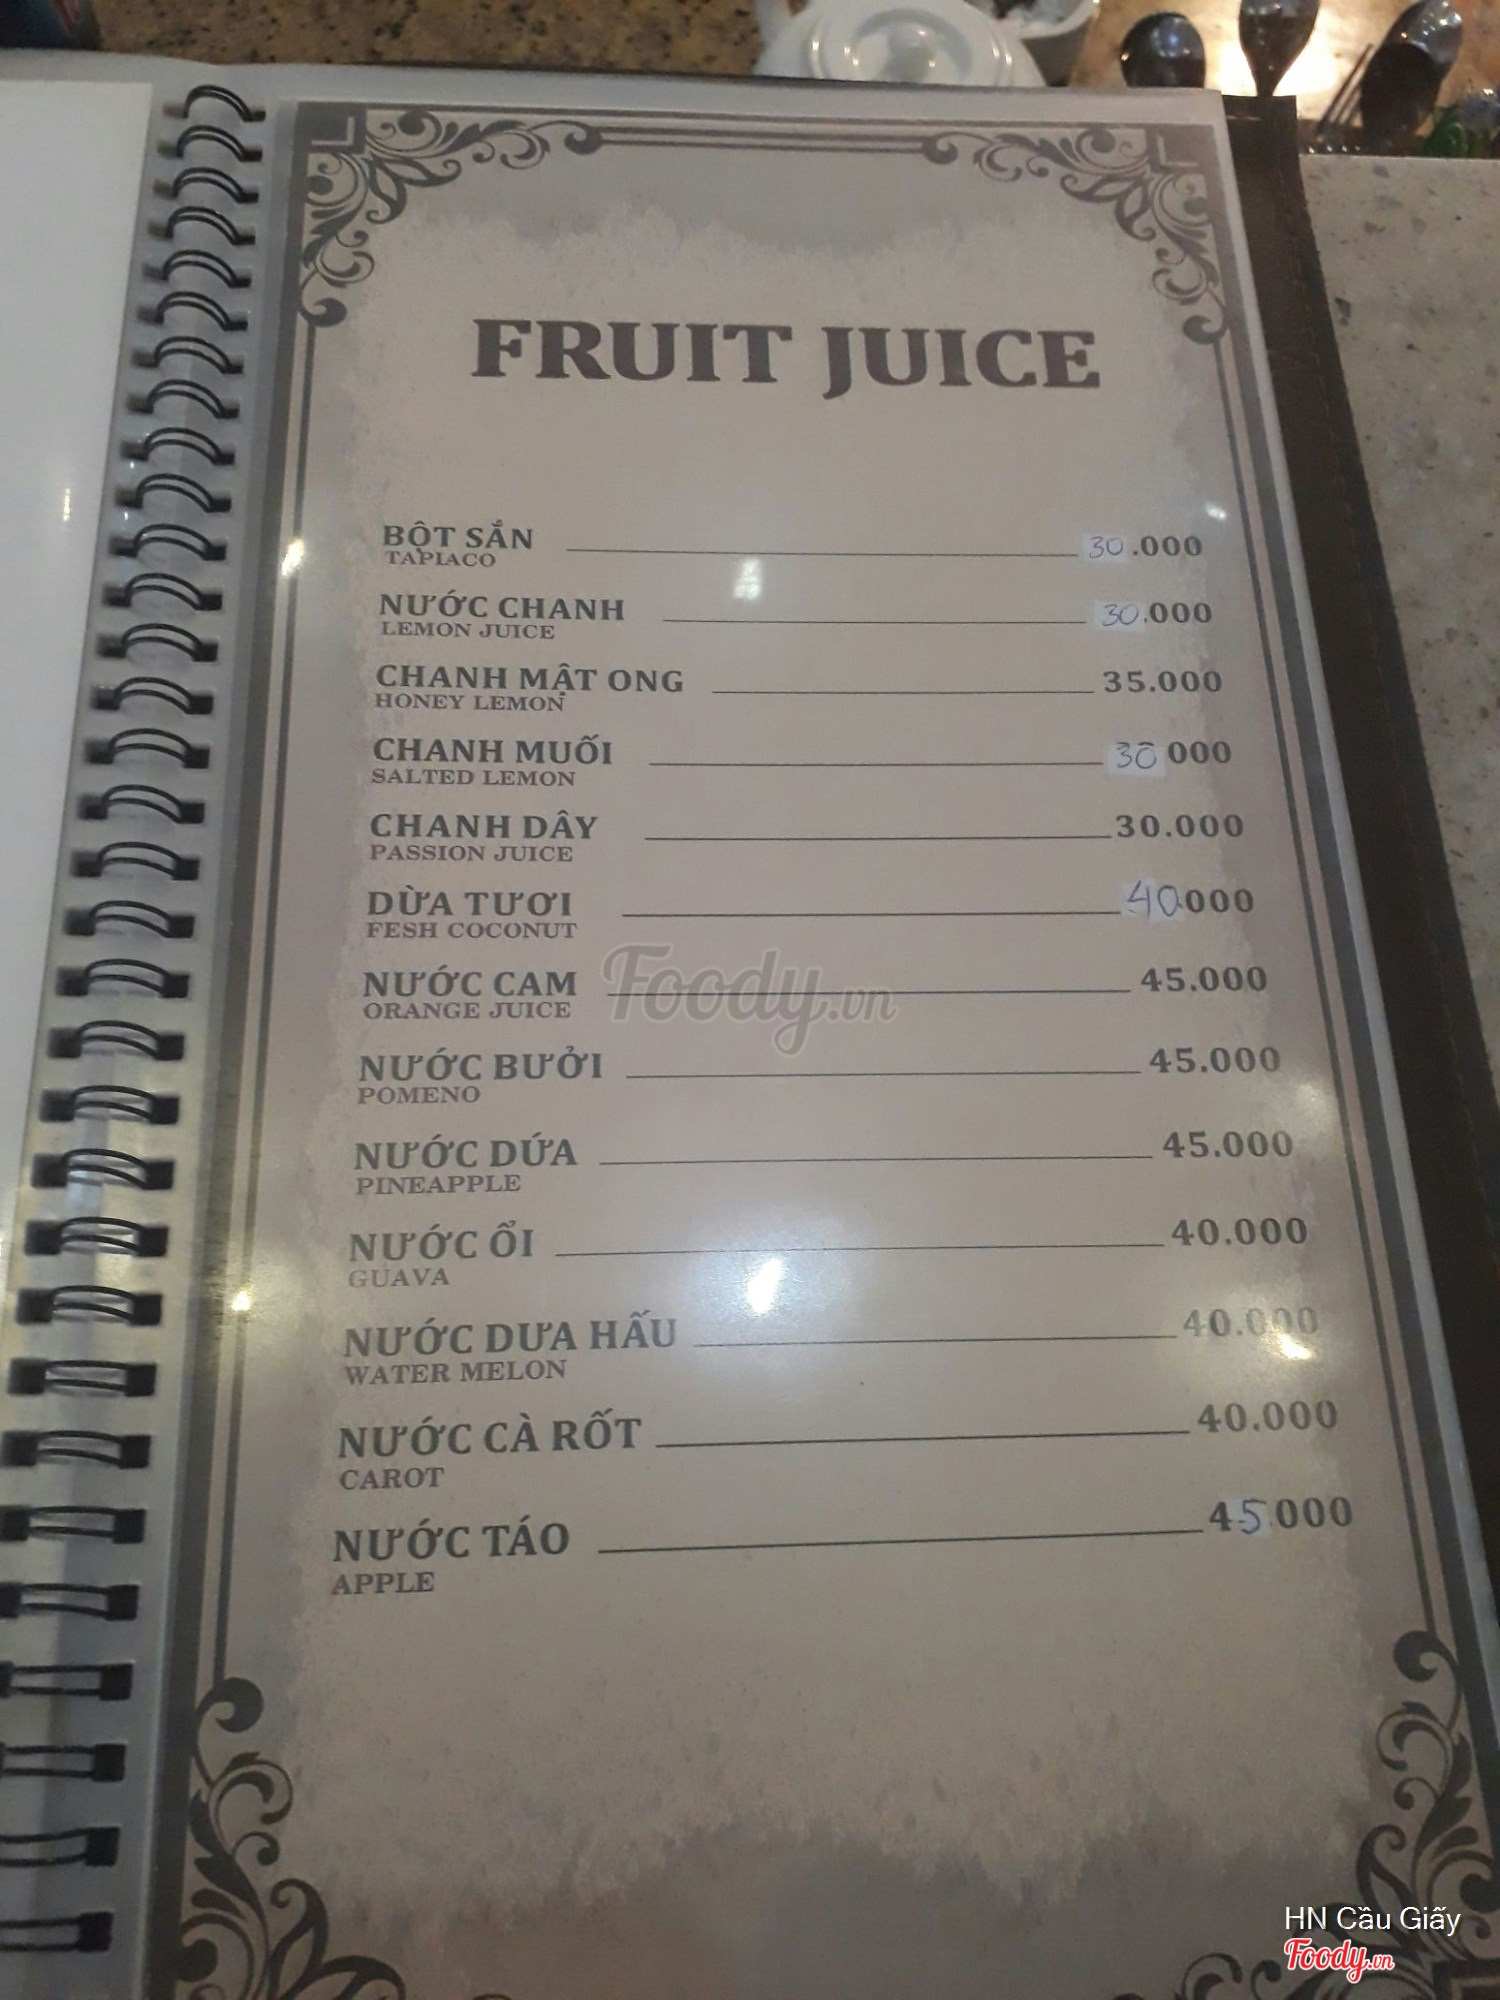 FRUIT JUICE
BỘT SẮN 30.000
TAPIACO
NƯỚC CHANH 30.000
LEMON JUICE
CHANH MẬT ONG 35.000
HONEY LEMON
CHANH MUỐI 30 000
SALTED LEMON
CHANH DÂY 30.000
PASSION JUICE
DỪA TƯƠI 40.000
FESH COCONUT
NƯỚC CAM 45.000
ORANGE JUICE
Foody.vn
NƯỚC BƯỞI 45.000
POMENO
NƯỚC DỨA 45.000
PINEAPPLE
NƯỚC ỔI 40.000
GUAVA
NƯỚC DƯA HẤU 40.000
WATER MELON
NƯỚC CÀ RỐT 40.000
CAROT
NƯỚC TÁO 45.000
APPLE
HN Cầu Giấy
Foody.vn